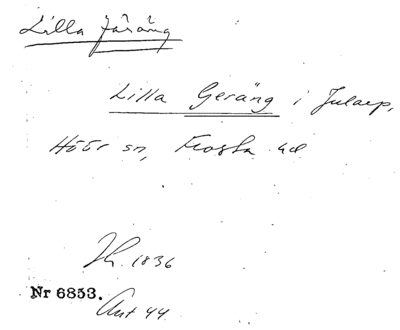 Lilla Järäng
Lilla Geräng i Jularp,
Höör sn, Frosta hd
1836
Nr 6853.
Ant 44